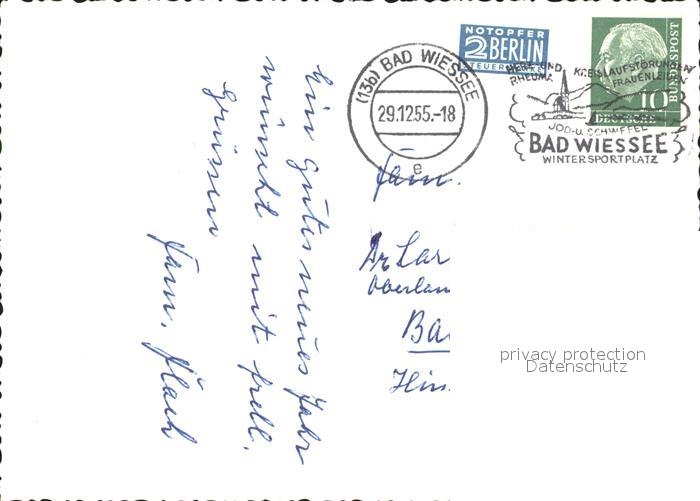 NOTOPFER
2 BERLIN
STEUERMARKE
(13b) BAD WIESSEE
29.12.55.-18
e
HERZ- UND KREISLAUFSTÖRUNGEN
RHEUMA FRAUENLEIDEN
JOD-U. SCHWEFEL
BAD WIESSEE
WINTERSPORTPLATZ
10
DEUTSCHE
BUNDESPOST
Ein gutes neues Jahr
wünscht mit frdl.
Grüssen
Fam. Flach
Fam.
Dr Lar
Oberlan
Ba
Hin
privacy protection
Datenschutz